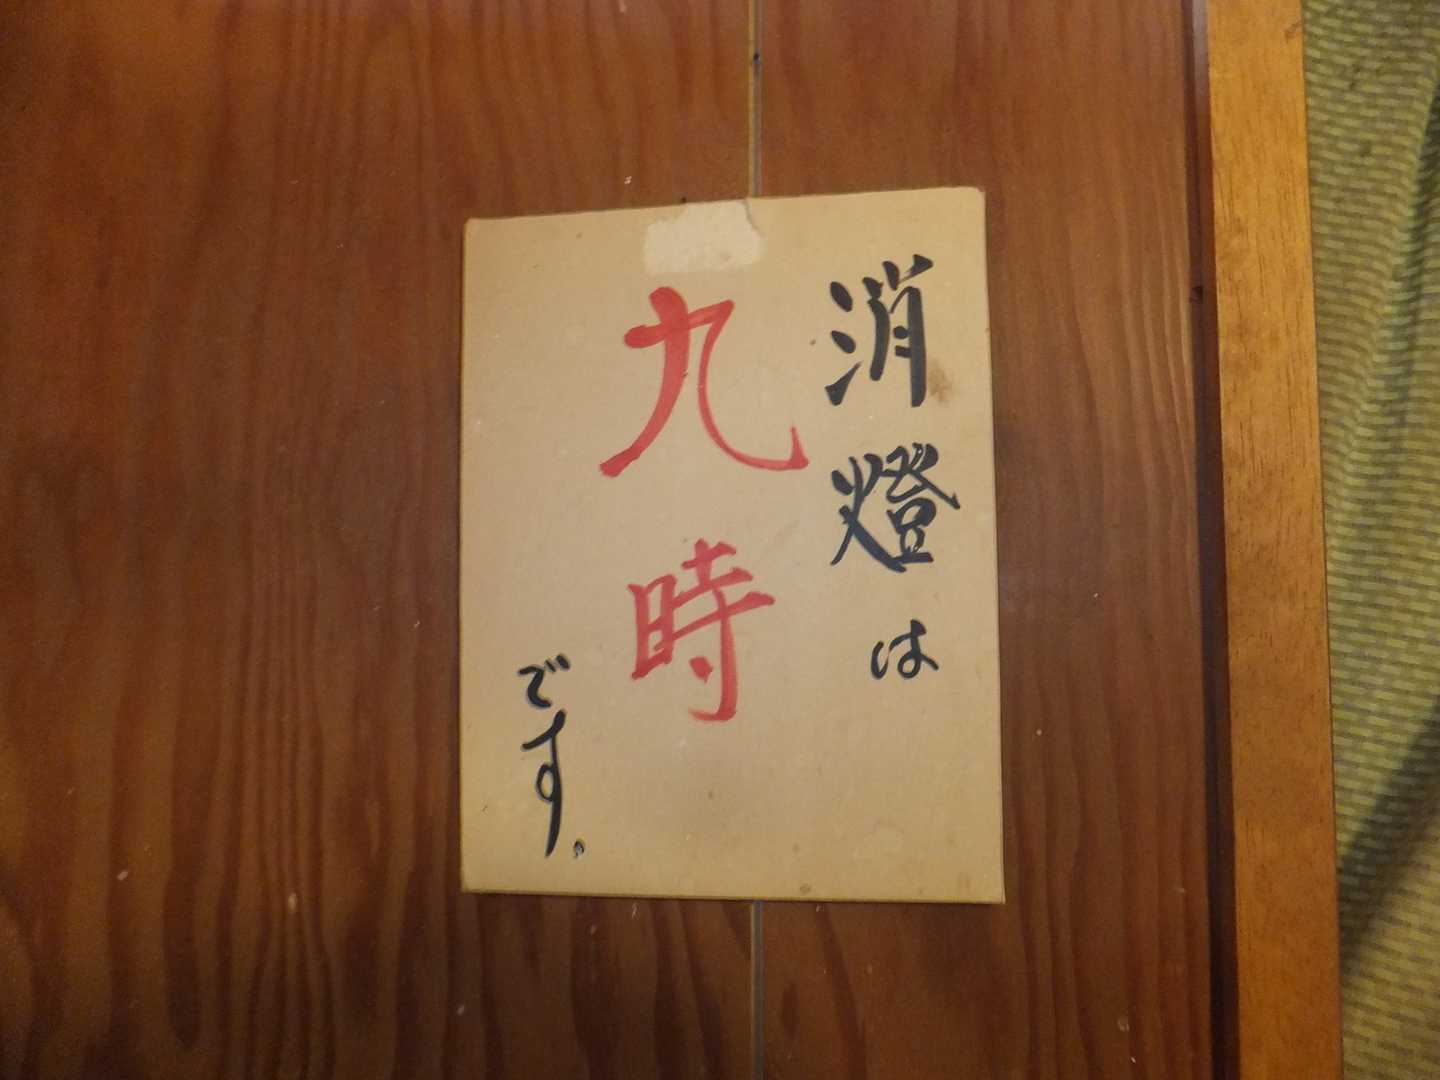 消燈は
九時
です。